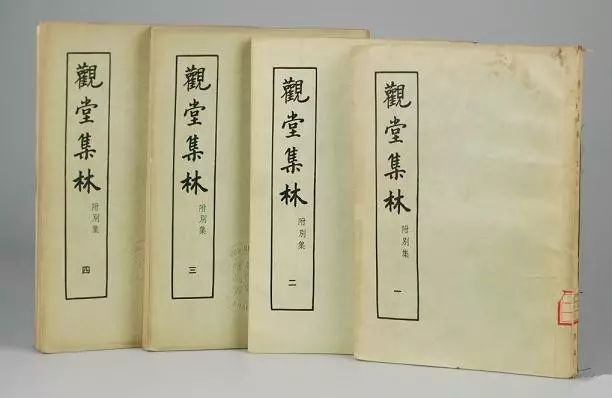 觀堂集林
附別集
四
觀堂集林
附別集
三
觀堂集林
附別集
二
觀堂集林
附別集
一